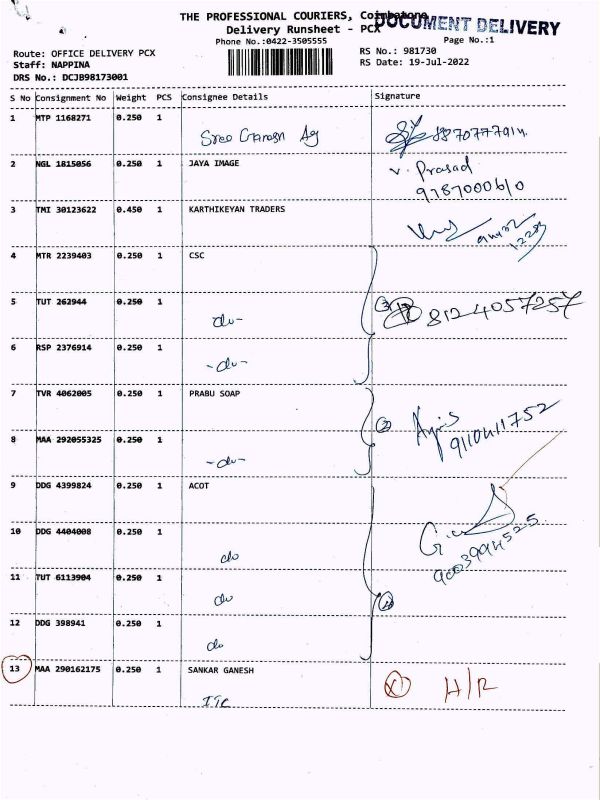 THE PROFESSIONAL COURIERS, Coimbatore
DOCUMENT DELIVERY
Delivery Runsheet - PCX
Phone No.:0422-3505555
Page No.:1
Route: OFFICE DELIVERY PCX
RS No.: 981730
Staff: NAPPINA
RS Date: 19-Jul-2022
DRS No.: DCJB98173001
S No Consignment No Weight PCS Consignee Details Signature
1 MTP 1168271 0.250 1
Sree Ganesh Ag 8870777914
2 NGL 1815056 0.250 1 JAYA IMAGE
V. Prasad
9787000610
3 TMI 30123622 0.450 1 KARTHIKEYAN TRADERS
4 MTR 2239403 0.250 1 CSC
5 TUT 262944 0.250 1
-do- 3 8124057257
6 RSP 2376914 0.250 1
-do-
7 TVR 4062005 0.250 1 PRABU SOAP
8 MAA 292055325 0.250 1 2
9110411752
-do-
9 DDG 4399824 0.250 1 ACOT
10 DDG 4404008 0.250 1
do 9003994525
11 TUT 6113904 0.250 1
do 4
12 DDG 398941 0.250 1
do
13 MAA 290162175 0.250 1 SANKAR GANESH
X H/R
ITC